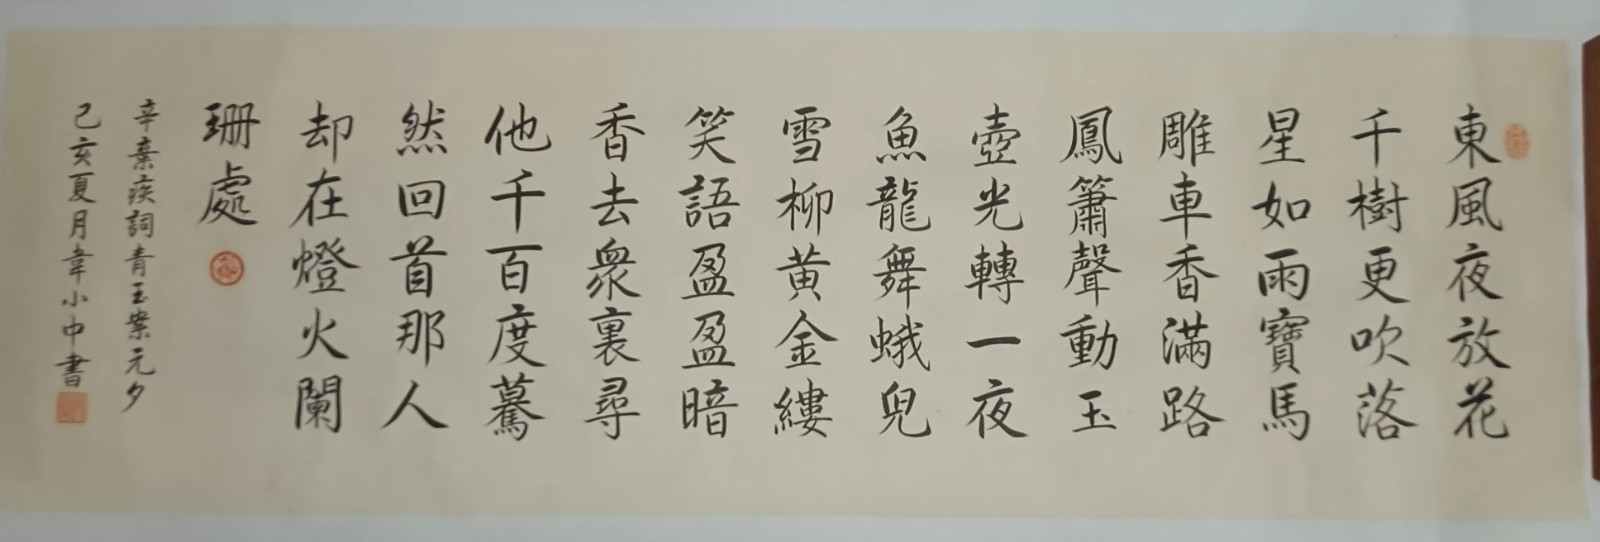 東風夜放花
千樹更吹落
星如雨寶馬
雕車香滿路
鳳簫聲動玉
壺光轉一夜
魚龍舞蛾兒
雪柳黃金縷
笑語盈盈暗
香去衆裏尋
他千百度驀
然回首那人
却在燈火闌
珊處
辛棄疾詞青玉案元夕
己亥夏月韋小中書